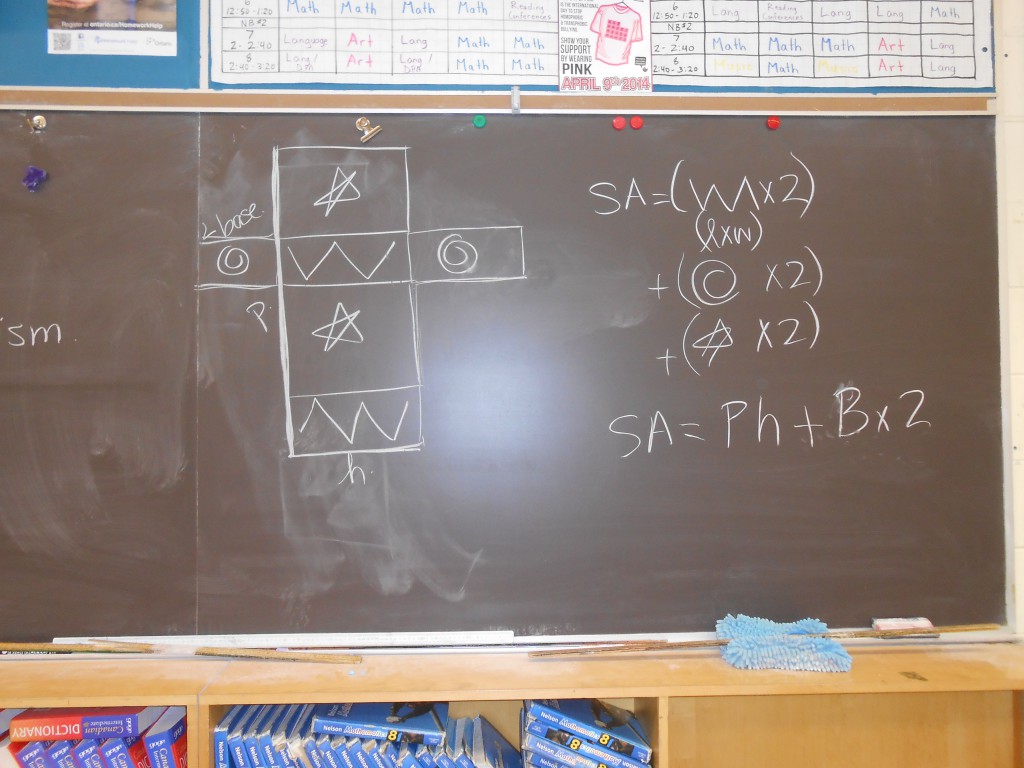 6 Math Math Math Math Reading Conferences
12:50-1:20
NB #2
7 Language Art Lang Math Math
2-2:40
8 Lang/ DPA Art Lang/ DPA Math Math
2:40-3:20
DAY TO STOP
HOMOPHOBIC
& TRANSPHOBIC
BULLYING
SHOW YOUR
SUPPORT
BY WEARING
PINK
APRIL 9th 2014
6 Lang Reading Conferences Lang Lang Math
12:50-1:20
NB #2
7 Math Math Math Art Lang
2-2:40
8 Music Math Music Art Lang
2:40-3:20
ism.
2 base.
P.
h.
SA=( x2)
(lxw)
+( x2)
+( x2)
SA= Ph + Bx2
DICTIONARY
Canadian
Intermediate
gage
Nelson Mathematics 8
Nelson Mathematics 8
Nelson Mathematics 8